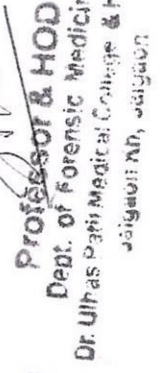 Professor & HOD
Dept. of Forensic Medicine
Dr. Ulhas Patil Medical College & H
Jalgaon Kh, Jalgaon